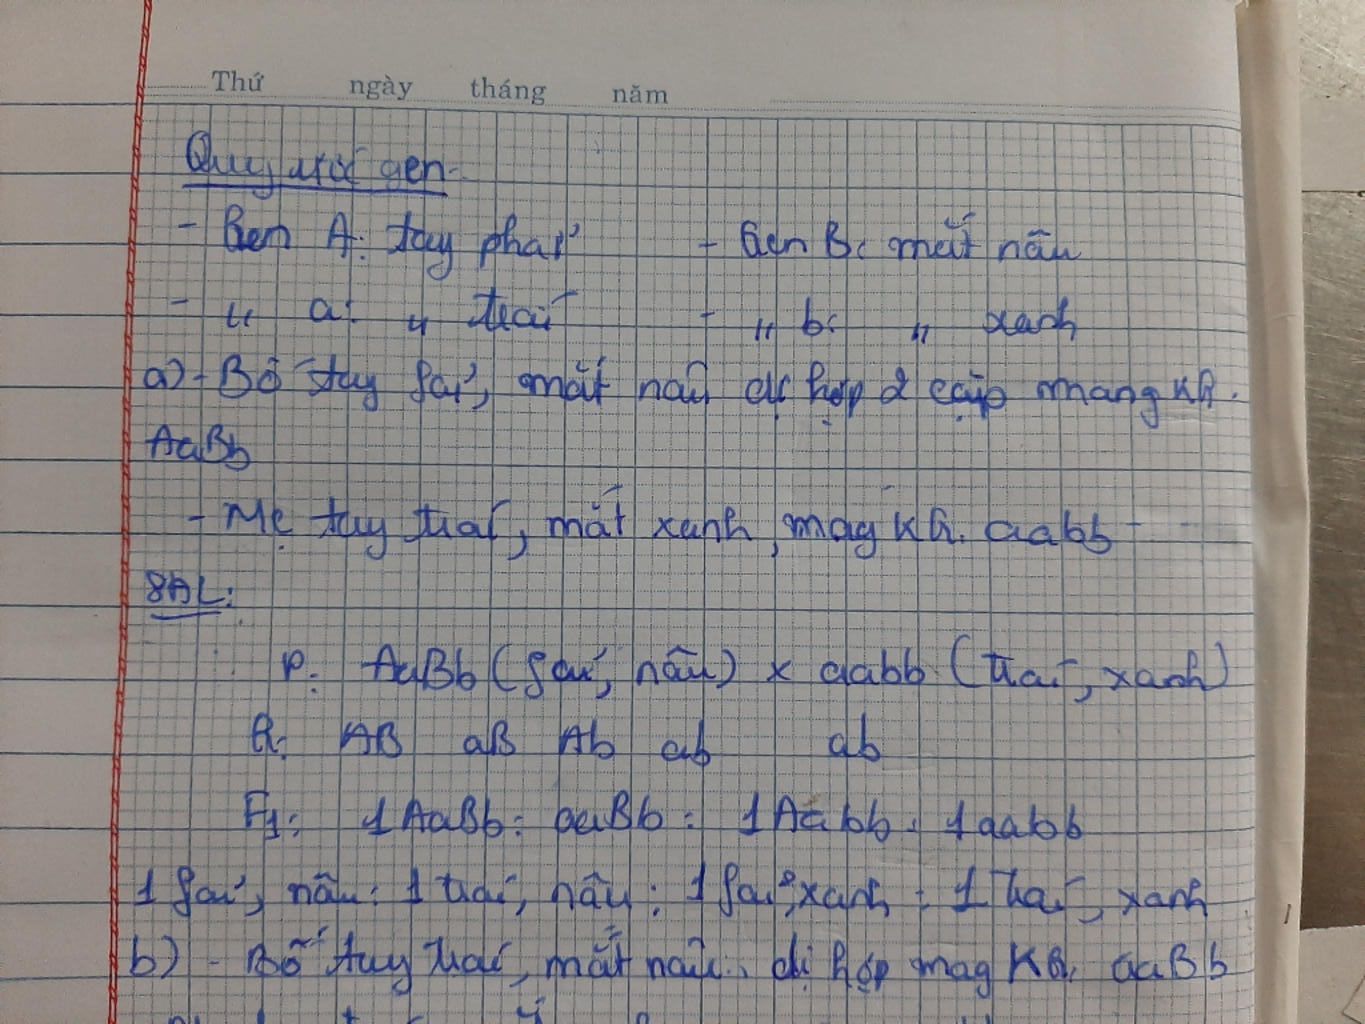 Thứ ngày tháng năm
Quy ước gen
- Gen A: tay phải - Gen B: mắt nâu
- " a: " trái - " b: " xanh
a) - Bố tay fải, mắt nâu dị hợp 2 cặp mang KG.
AaBb
- Mẹ tay trái, mắt xanh, mag KG. aabb
SĐL:
P: AaBb (fải, nâu) x aabb (trái, xanh)
G: AB aB Ab ab ab
F1: 1AaBb : aaBb : 1Aabb : 1aabb
1 fải, nâu : 1 trái, nâu : 1 fải, xanh : 1 trái, xanh
b) - Bố tay trái, mắt nâu, dị hợp mag KG. aaBb